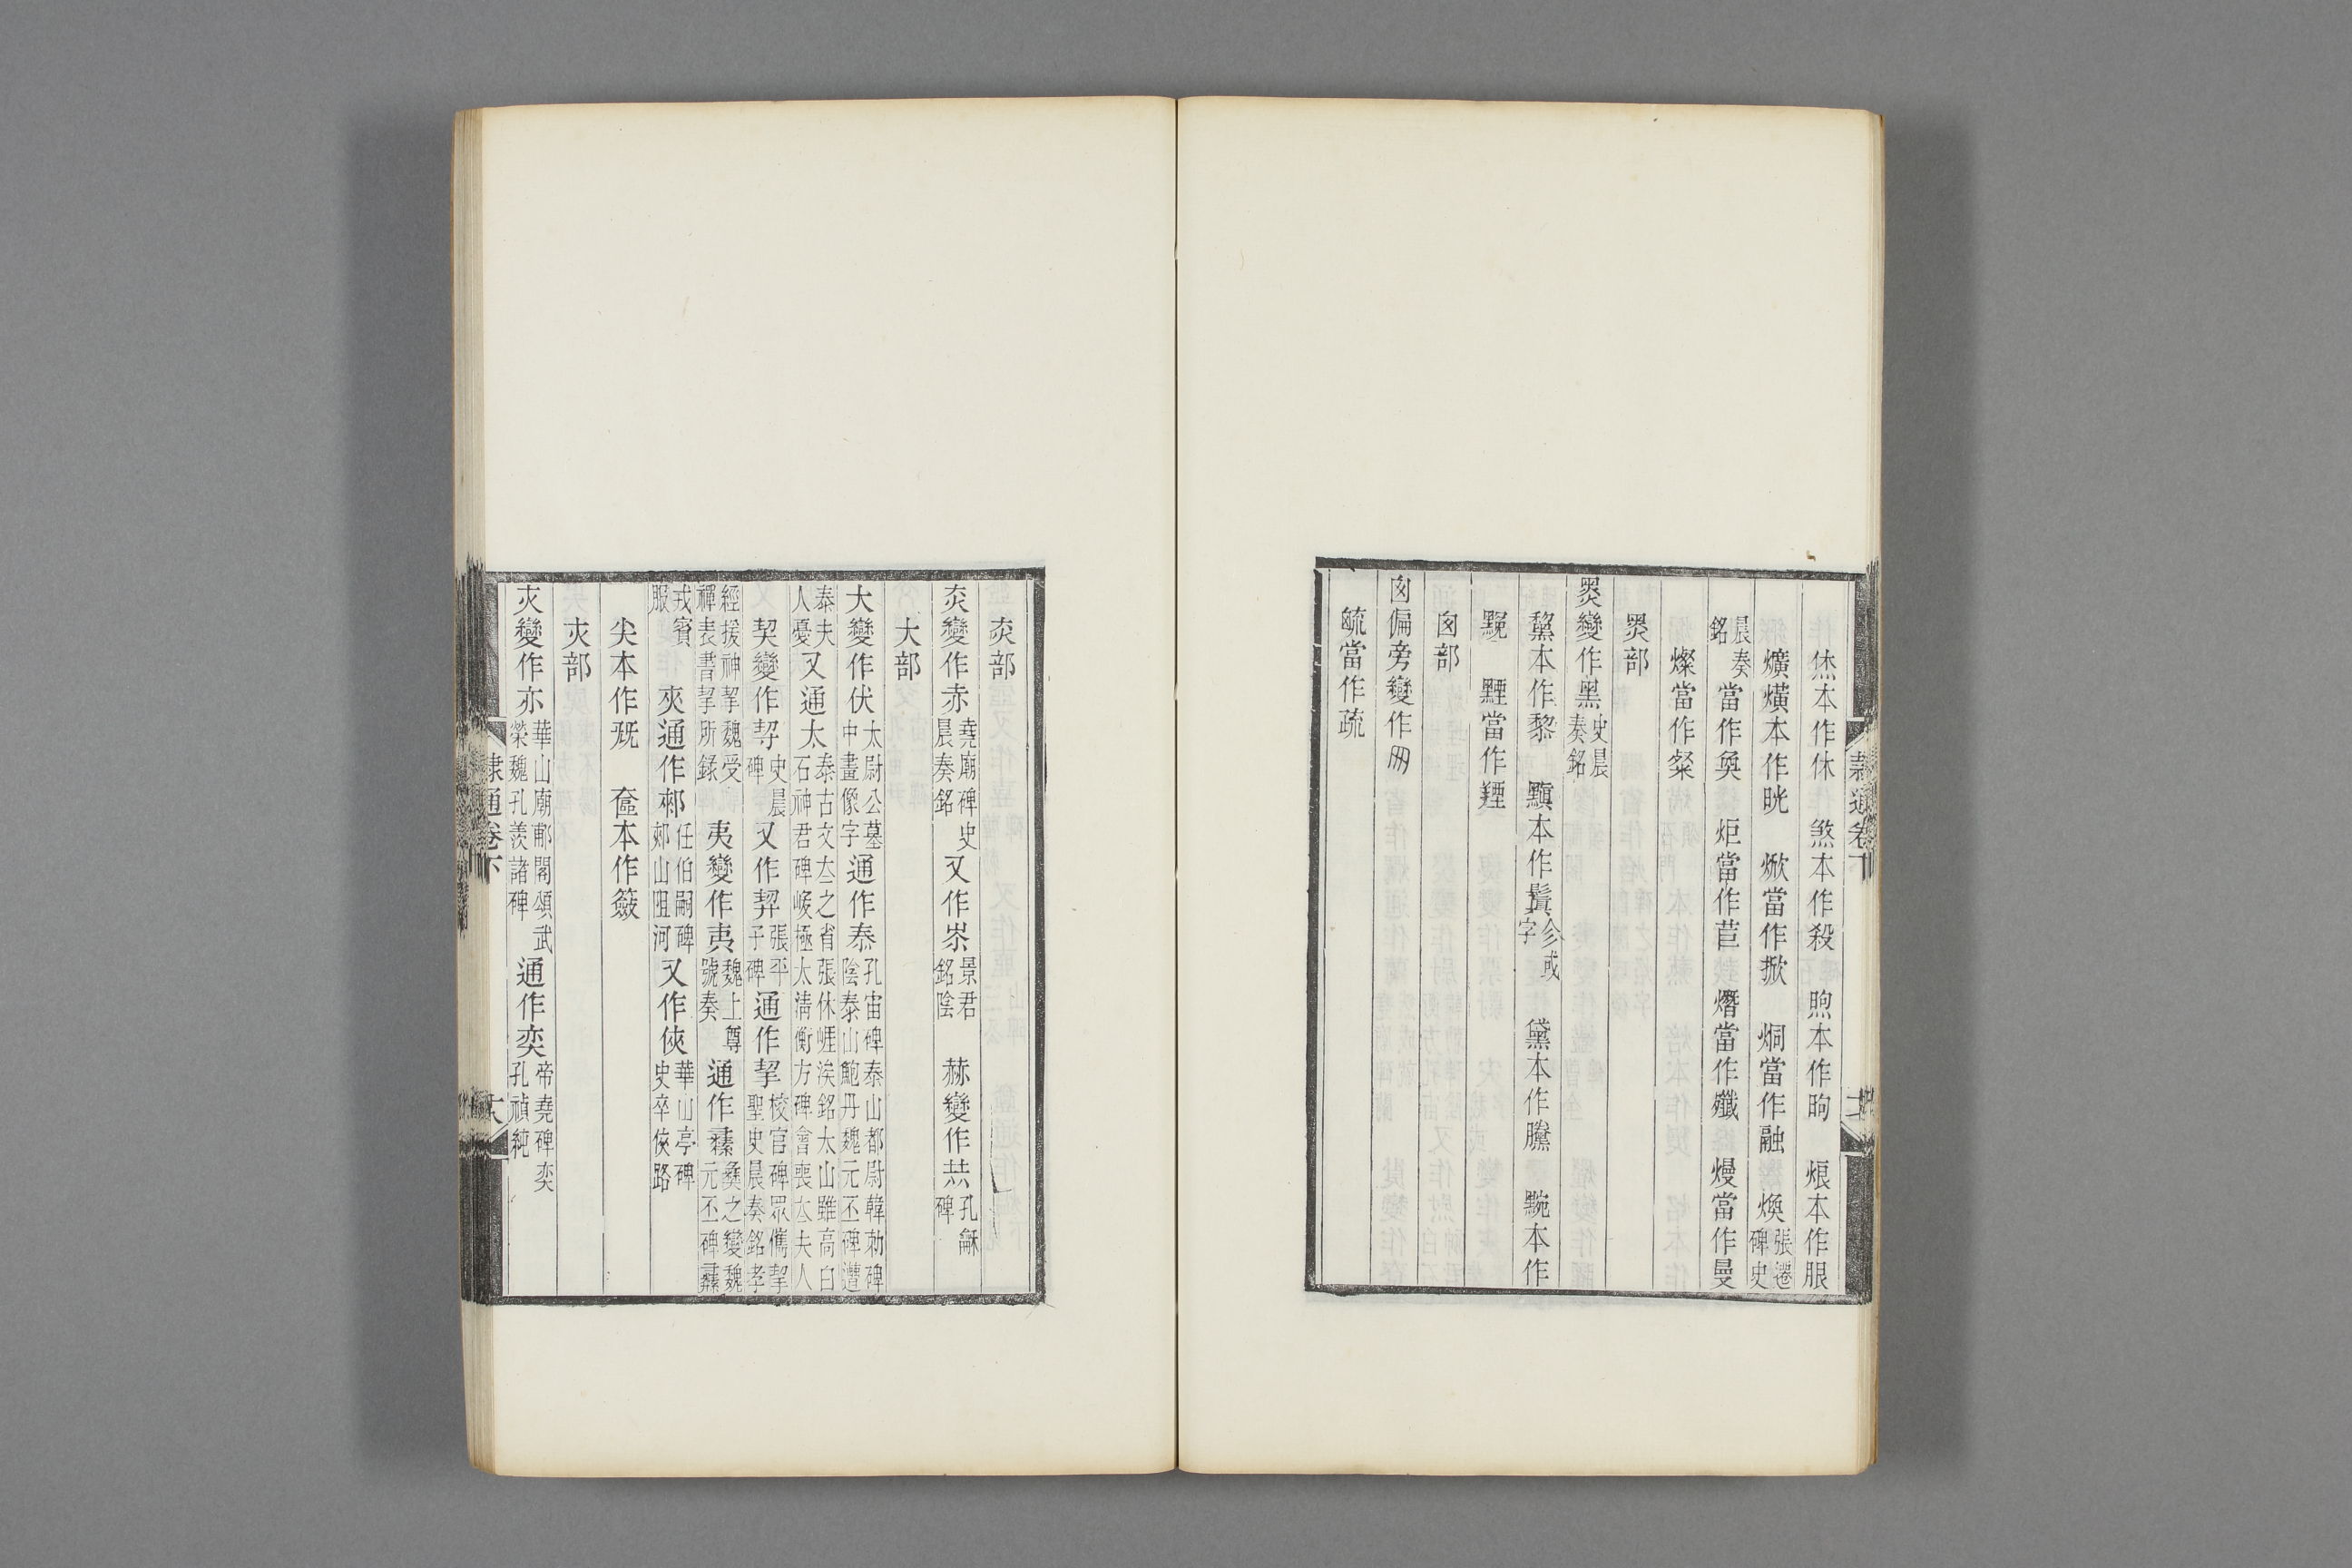 烋本作休　煞本作殺　煦本作昫　烺本作朖
爌熿本作晄　焮當作掀　烔當作融　煥張遷碑史
晨奏銘當作奐　炬當作苣　熸當作㸅　熳當作曼
燦當作粲
炎部
炎變作黑史晨奏銘
黧本作黎　黰本作鬒㐱或字　黛本作黱　黦本作
䵫　黫當作羥
囱部
囱偏旁變作囪
毓當作疏
隸通卷下
炎部
灻變作赤堯廟碑史晨奏銘又作烾景君銘陰　赫變作㷎孔龢碑
大部
大變作伏太尉公墓中畫像字通作泰孔宙碑陰泰山都尉韓勑碑泰山鮑丹魏元丕碑遭
泰夫人憂又通太泰古文夳之省張休崕涘銘太山雖高白石神君碑峻極太清衡方碑會喪夳夫人
契變作㓞史晨碑又作䂮張平子碑通作挈校官碑眾儁挈聖史晨奏銘孝
經援神挈魏受禪表書挈所錄　夷變作𡗝魏上尊號奏通作彝彝之變魏元丕碑彝
戎賓服　夾通作郟任伯嗣碑郟山阻河又作俠華山亭碑史卒俠路
尖本作兓　奩本作籢
夾部
夾變作亦華山廟郙閣頌武榮魏孔羨諸碑通作奕帝堯碑奕奕孔禎純
隸通卷下　六